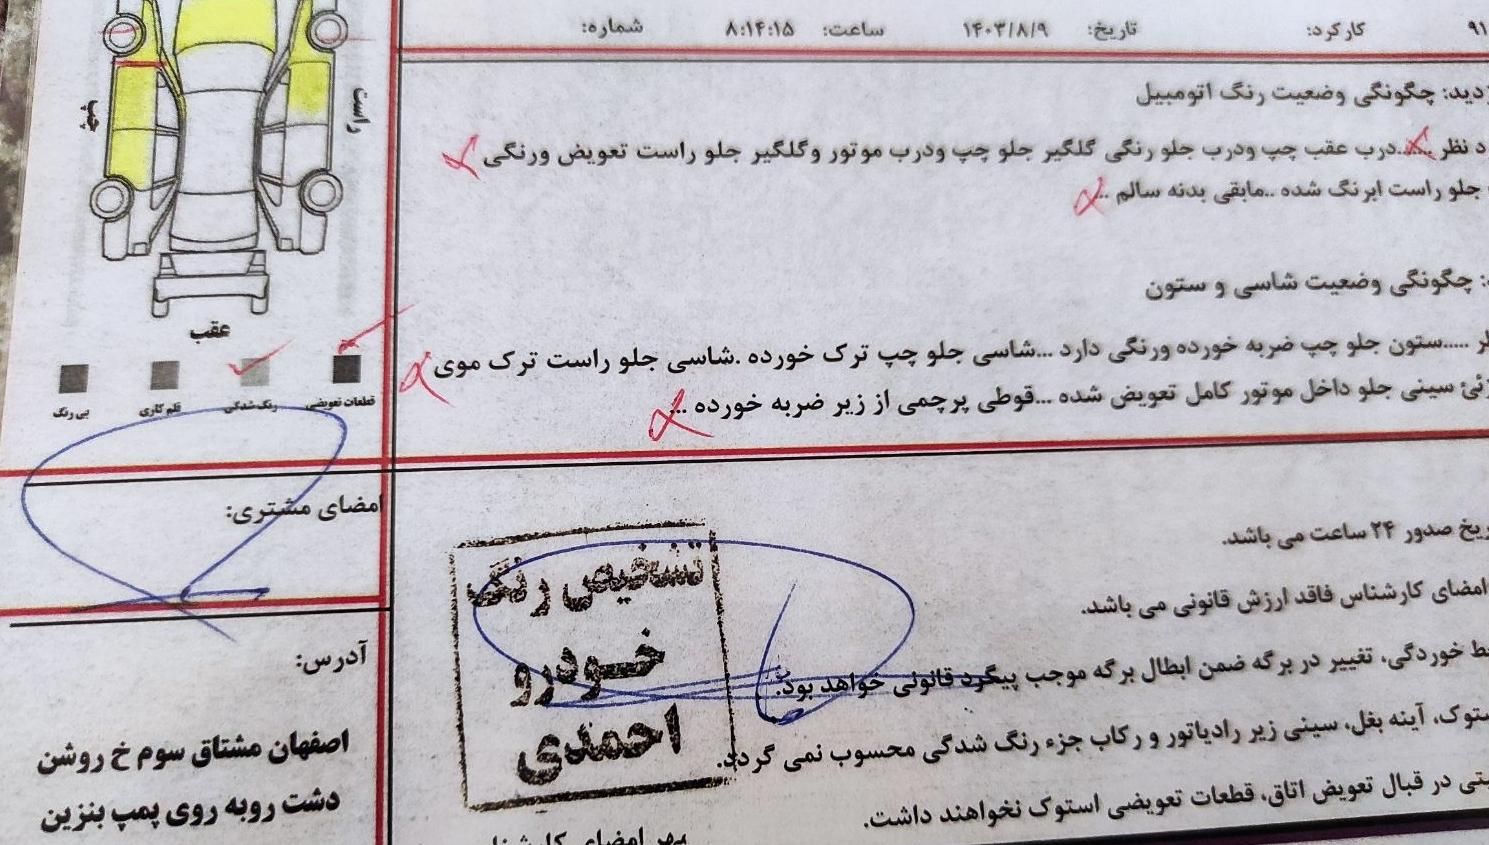 کارکرد: تاریخ: ۱۴۰۳/۸/۹ ساعت: ۸:۱۴:۱۵ شماره:
چگونگی وضعیت رنگ اتومبیل
د نظر ......درب عقب چپ ودرب جلو رنگی گلگیر جلو چپ ودرب موتور وگلگیر جلو راست تعویض ورنگی
جلو راست ابرنگ شده ..مابقی بدنه سالم ..
چگونگی وضعیت شاسی و ستون
.....ستون جلو چپ ضربه خورده ورنگی دارد ...شاسی جلو چپ ترک خورده .شاسی جلو راست ترک موی
سینی جلو داخل موتور کامل تعویض شده ...قوطی پرچمی از زیر ضربه خورده ...
صدور ۲۴ ساعت می باشد.
امضای کارشناس فاقد ارزش قانونی می باشد.
خوردگی، تغییر در برگه ضمن ابطال برگه موجب پیگرد قانونی خواهد بود.
آینه بغل، سینی زیر رادیاتور و رکاب جزء رنگ شدگی محسوب نمی گردد.
در قبال تعویض اتاق، قطعات تعویضی استوک نخواهند داشت.
تشخیص رنگ
خودرو
احمدی
مهر امضای
راست
چپ
عقب
قطعات تعویضی رنگ شدگی قلم کاری بی رنگ
امضای مشتری:
آدرس:
اصفهان مشتاق سوم خ روشن
دشت روبه روی پمپ بنزین